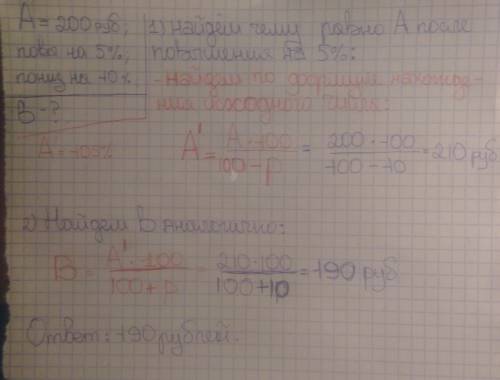 A = 200 руб;
повы на 5%;
пониз на 10%.
B - ?
A = 105%
1) найдём чему равно A после
повышения на 5%:
- найдём по формуле нахожде-
ния исходного числа:
A' = A · 100 / 100 - p = 200 · 100 / 100 - 10 = 210 руб
2) Найдем B аналогично:
B = A' · 100 / 100 + p = 210 · 100 / 100 + 10 = 190 руб
Ответ: 190 рублей.